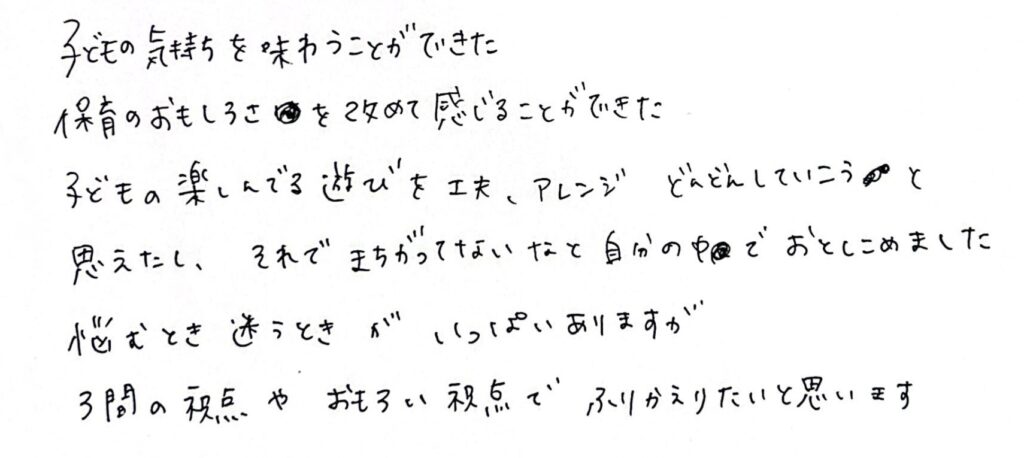 子どもの気持ちを味わうことができた
保育のおもしろさを改めて感じることができた
子どもの楽しんでる遊びを工夫、アレンジ どんどんしていこうと
思えたし、それでまちがってないなと自分の中でおとしこめました
悩むとき迷うときがいっぱいありますが
3間の視点やおもろい視点でふりかえりたいと思います